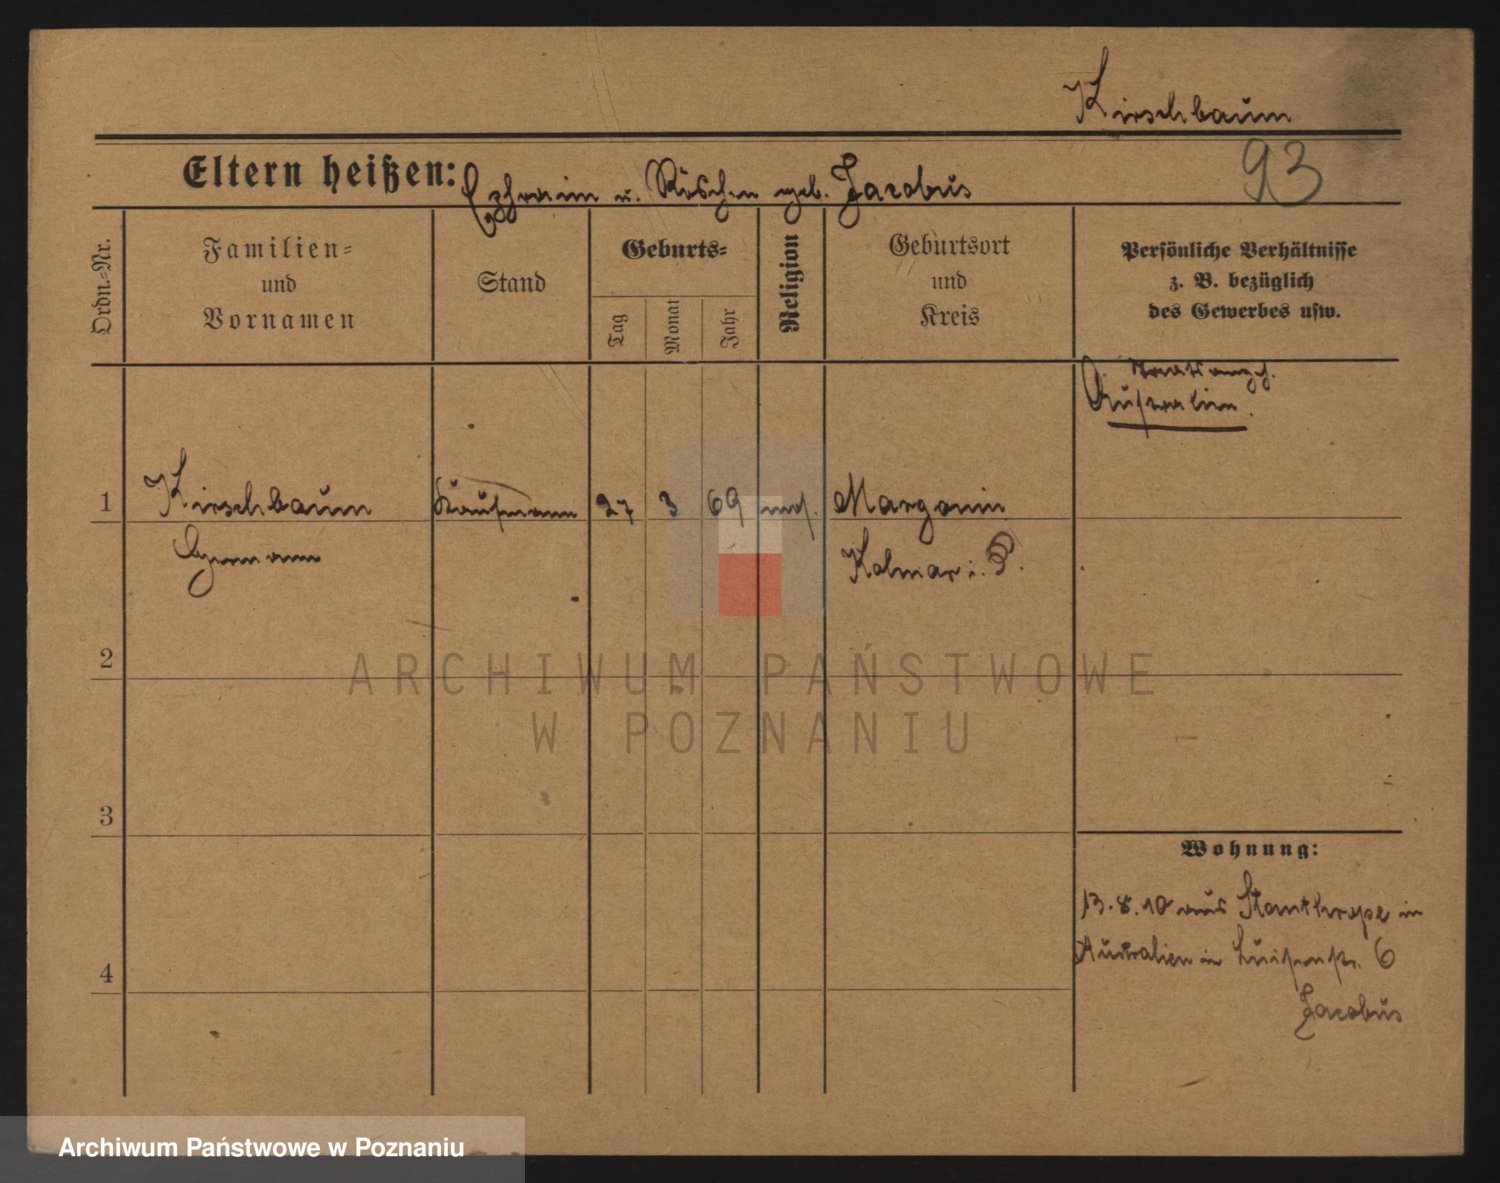 Kirschbaum
Eltern heißen: Ephraim u. Röschen geb. Jacobus
93
Ordn.-Nr.
Familien-
und
Vornamen
Stand
Geburts-
Tag
Monat
Jahr
Religion
Geburtsort
und
Kreis
Persönliche Verhältnisse
z. B. bezüglich
des Gewerbes usw.
Staatsang.
Australien.
1 Kirschbaum Kaufmann 27 3 69 mos. Margonin
Hermann Kolmar i. P.
2
ARCHIWUM PAŃSTWOWE
W POZNANIU
3
Wohnung:
13.8.10 aus in
Australien in Luisenstr. 6
Jacobus
4
Archiwum Państwowe w Poznaniu